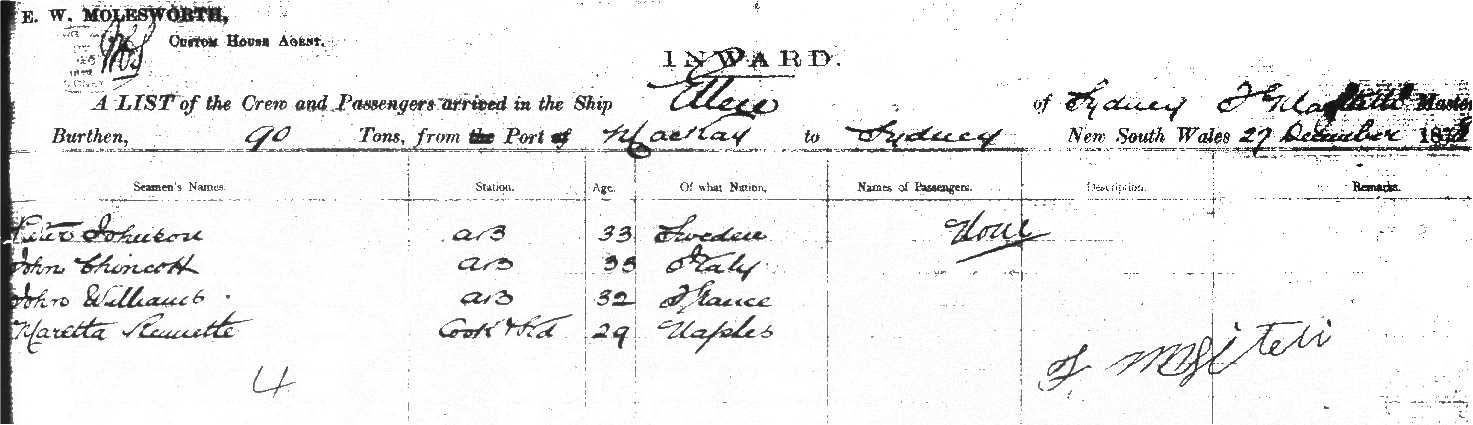 E. W. MOLESWORTH,
CUSTOM HOUSE AGENT.
INWARD.
A LIST of the Crew and Passengers arrived in the Ship Ellen of Sydney Master
Burthen, 90 Tons, from the Port of Mackay to Sydney New South Wales 27 December 187
Seamen's Names. Station. Age. Of what Nation. Names of Passengers. Description. Remarks.
Peter Johnson AB 33 Sweden None
John Chincott AB 33 Italy
John Williams AB 32 France
Maretta Cook & Std 29 Naples
4